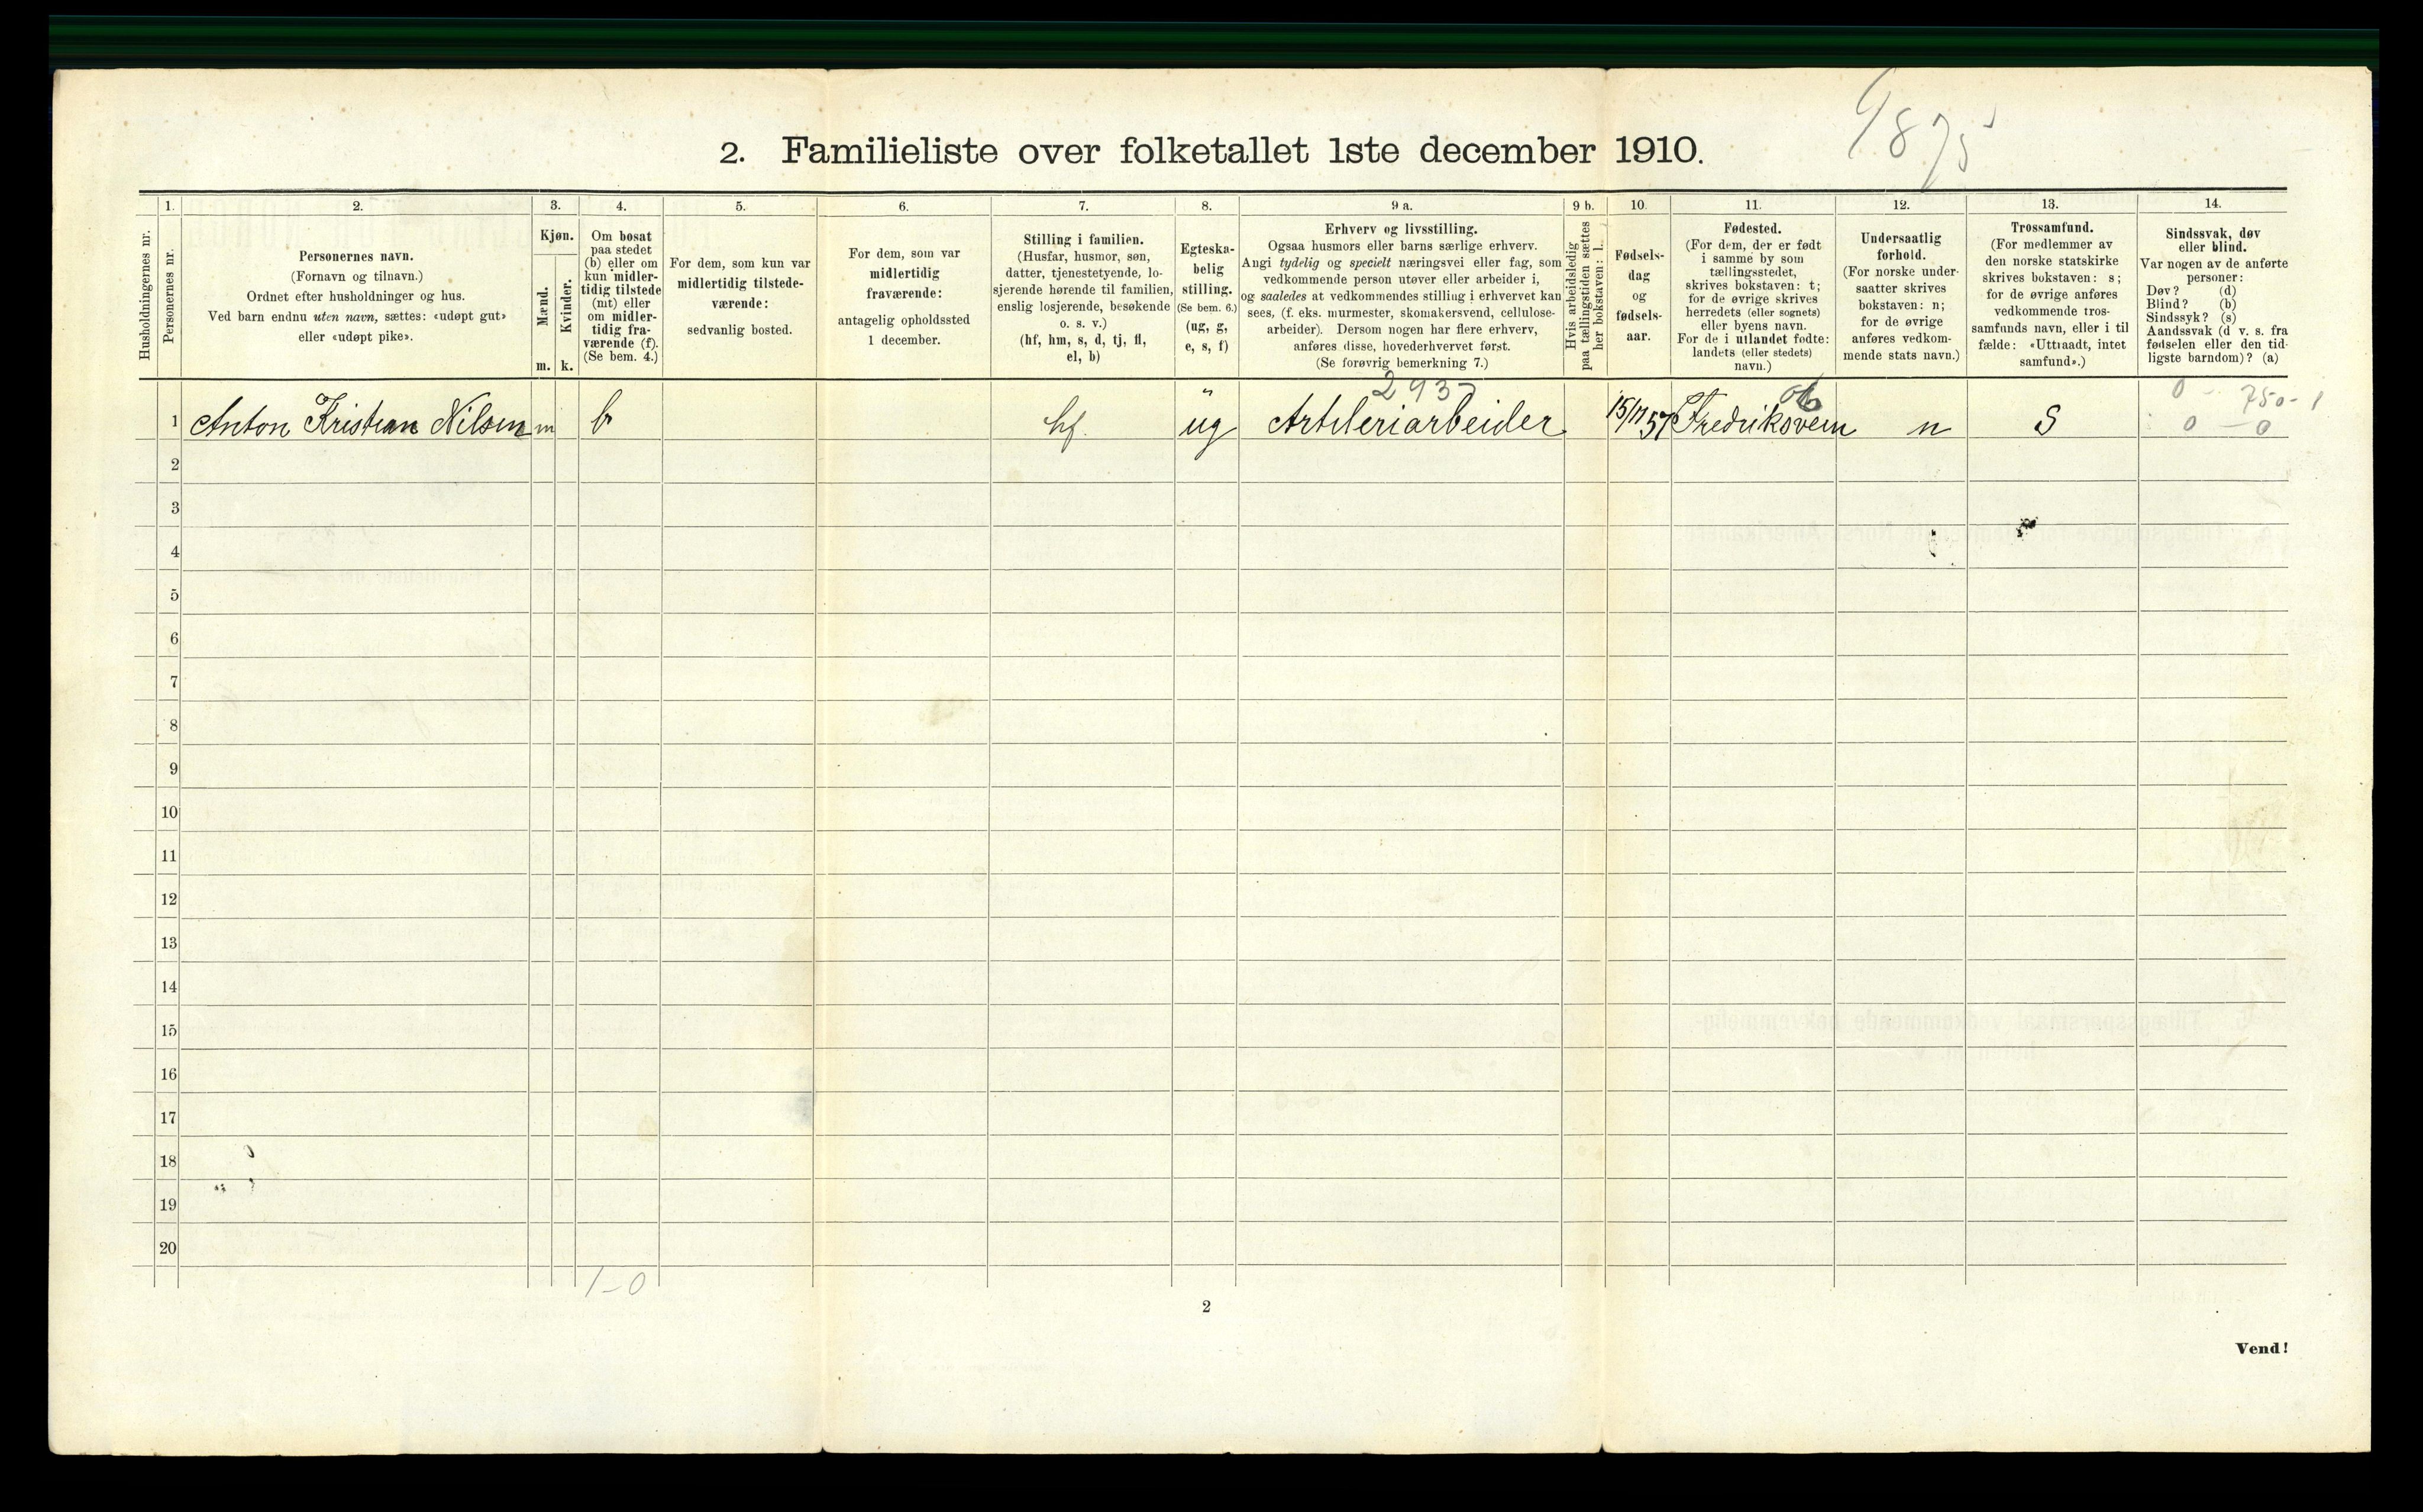 2. Familieliste over folketallet 1ste december 1910.
1. 2. 3. 4. 5. 6. 7. 8. 9 a. 9 b. 10. 11. 12. 13. 14.
Husholdningernes nr.
Personernes nr.
Personernes navn.
(Fornavn og tilnavn.)
Ordnet efter husholdninger og hus.
Ved barn endnu uten navn, sættes: «udøpt gut»
eller «udøpt pike».
Kjøn.
Mænd.
Kvinder.
m. k.
Om bosat
paa stedet
(b) eller om
kun midler-
tidig tilstede
(mt) eller
om midler-
tidig fra-
værende (f).
(Se bem. 4.)
For dem, som kun var
midlertidig tilstede-
værende:
sedvanlig bosted.
For dem, som var
midlertidig
fraværende:
antagelig opholdssted
1 december.
Stilling i familien.
(Husfar, husmor, søn,
datter, tjenestetyende, lo-
sjerende hørende til familien,
enslig losjerende, besøkende
o. s. v.)
(hf, hm, s, d, tj, fl,
el, b)
Egteska-
belig
stilling.
(Se bem. 6.)
(ug, g,
e, s, f)
Erhverv og livsstilling.
Ogsaa husmors eller barns særlige erhverv.
Angi tydelig og specielt næringsvei eller fag, som
vedkommende person utøver eller arbeider i,
og saaledes at vedkommendes stilling i erhvervet kan
sees, (f. eks. murmester, skomakersvend, cellulose-
arbeider). Dersom nogen har flere erhverv,
anføres disse, hovederhvervet først.
(Se forøvrig bemerkning 7.)
Hvis arbeidsledig
paa tællingstiden sættes
her bokstaven: l.
Fødsels-
dag
og
fødsels-
aar.
Fødested.
(For dem, der er født
i samme by som
tællingsstedet,
skrives bokstaven: t;
for de øvrige skrives
herredets (eller sognets)
eller byens navn.
For de i utlandet fødte:
landets (eller stedets)
navn.)
Undersaatlig
forhold.
(For norske under-
saatter skrives
bokstaven: n;
for de øvrige
anføres vedkom-
mende stats navn.)
Trossamfund.
(For medlemmer av
den norske statskirke
skrives bokstaven: s;
for de øvrige anføres
vedkommende tros-
samfunds navn, eller i til
fælde: «Uttraadt, intet
samfund».)
Sindssvak, døv
eller blind.
Var nogen av de anførte
personer:
Døv? (d)
Blind? (b)
Sindssyk? (s)
Aandssvak (d v. s. fra
fødselen eller den tid-
ligste barndom)? (a)
293
0 - 750 - 1
1 Anton Kristian Nilsen m b hf. ug Artileriarbeider 57 Fredriksvern n S 0 - 0
2
3
4
5
6
7
8
9
10
11
12
13
14
15
16
17
18
19
20
1-0
2
Vend!